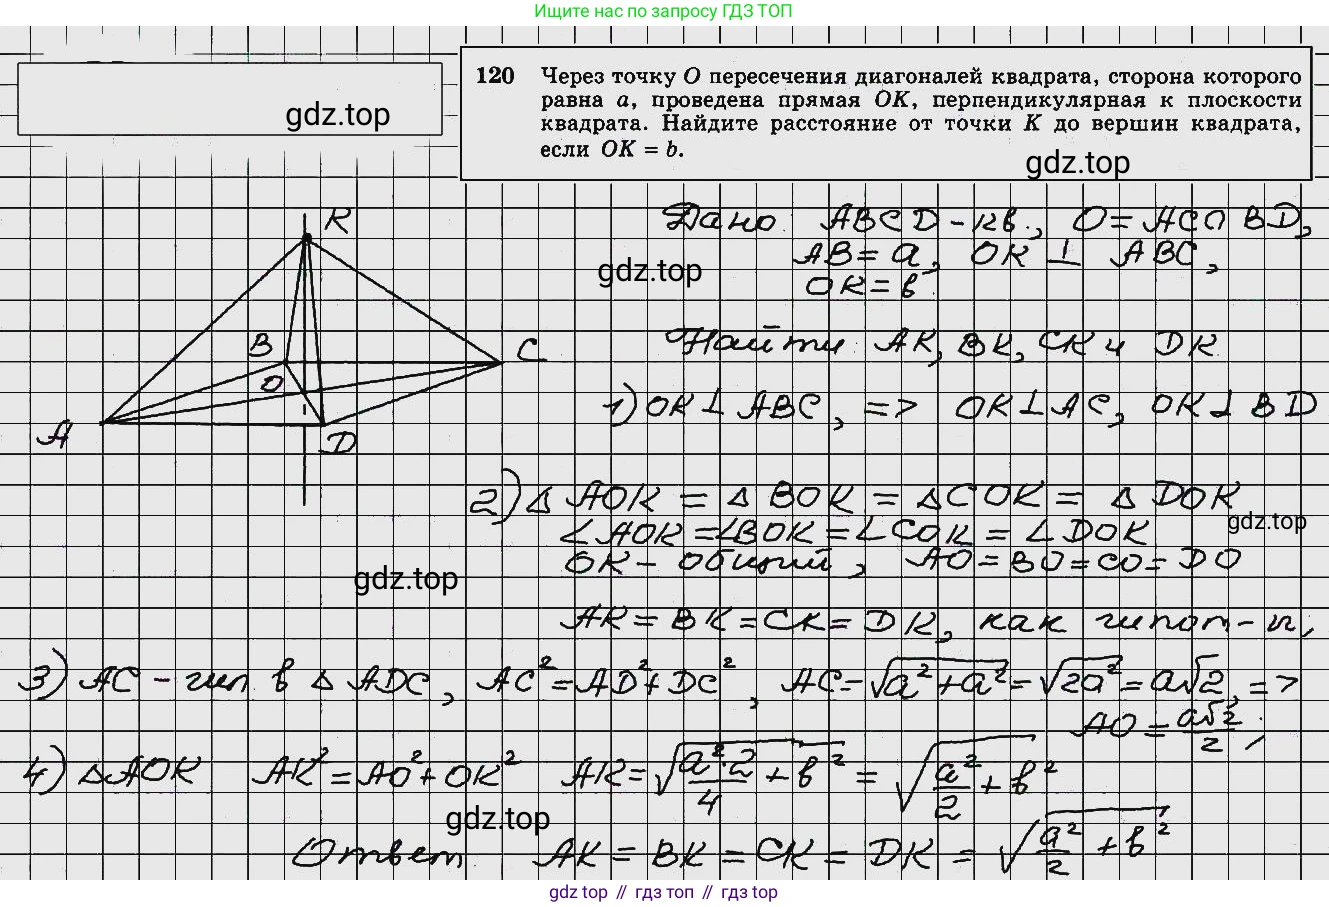 Ищите нас по запросу ГДЗ ТОП
gdz.top
120 Через точку O пересечения диагоналей квадрата, сторона которого
равна a, проведена прямая OK, перпендикулярная к плоскости
квадрата. Найдите расстояние от точки K до вершин квадрата,
если OK = b.
gdz.top
K
B
C
O
A
D
Дано ABCD - кв., O = AC∩BD,
AB = a, OK ⊥ ABC,
gdz.top
OK = в
Найти AK, BK, CK и DK
1) OK ⊥ ABC, => OK ⊥ AC, OK ⊥ BD
2) △ AOK = △ BOK = △ COK = △ DOK
gdz.top
∠AOK = ∠BOK = ∠COK = ∠DOK
OK - общий, AO = BO = CO = DO
gdz.top
AK = BK = CK = DK, как гипот-ы,
3) AC - гип в △ ADC, AC² = AD² + DC², AC = √(a² + a²) = √(2a²) = a√2, =>
AO = a√2/2;
4) △AOK AK² = AO² + OK² AK = √(a²·2/4 + в²) = √(a²/2 + в²)
gdz.top
Ответ AK = BK = CK = DK = √(a²/2 + в²)
gdz top // гдз топ // гдз top